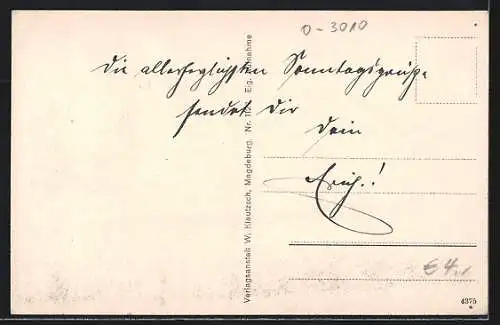 0-3010
Die allerherzlichsten Sonntagsgrüße
sendet Dir
Dein
Erich.!
Verlagsanstalt W. Klautzsch, Magdeburg. Nr. 11 Eig. Aufnahme
€ 4,-
4375